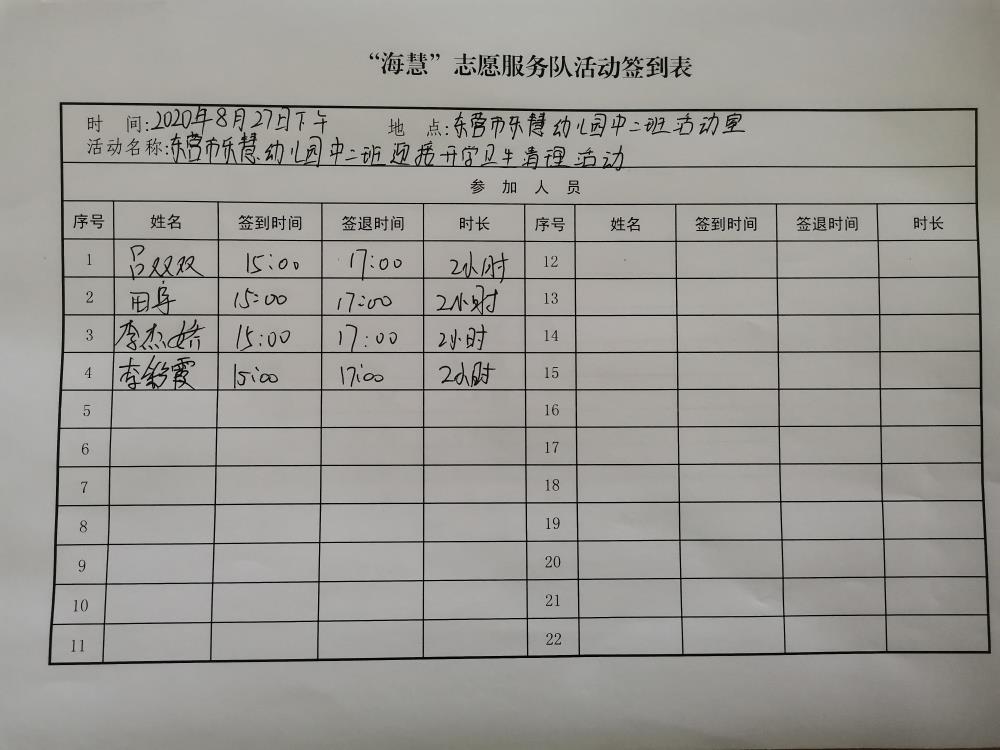 “海慧”志愿服务队活动签到表
时 间:2020年8月27日下午 地 点:东营市乐慧幼儿园中二班活动室
活动名称:东营市乐慧幼儿园中二班迎接开学卫生清理活动
参 加 人 员
序号 姓名 签到时间 签退时间 时长 序号 姓名 签到时间 签退时间 时长
1 吕双双 15:00 17:00 2小时 12
2 田 15:00 17:00 2小时 13
3 李杰娇 15:00 17:00 2小时 14
4 李彩霞 15:00 17:00 2小时 15
5 16
6 17
7 18
8 19
9 20
10 21
11 22